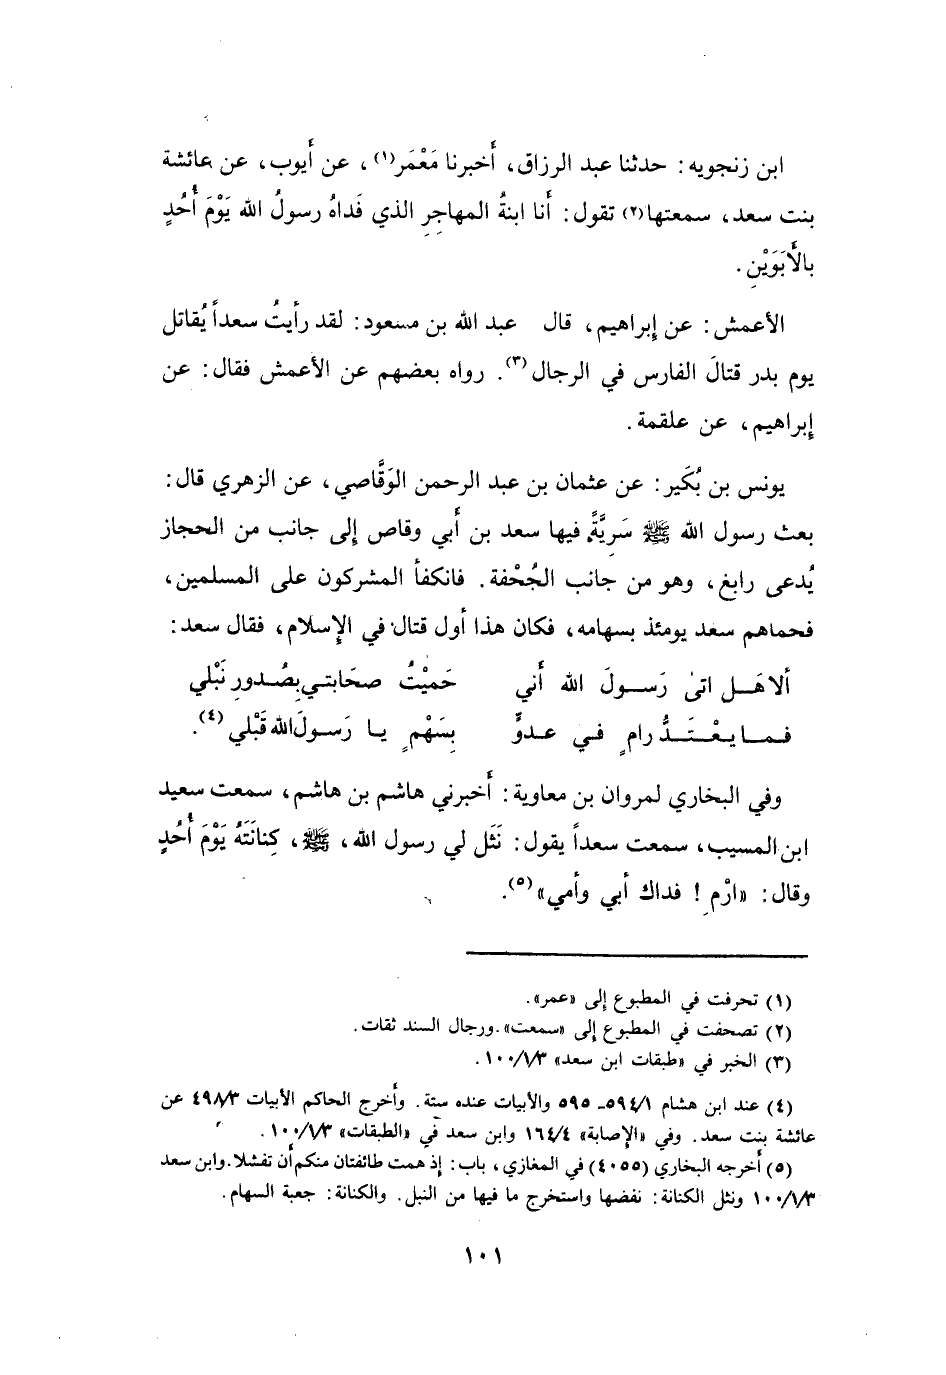 ابن زنجويه: حدثنا عبد الرزاق، أخبرنا مَعْمَر(١)، عن أيوب، عن عائشة
بنت سعد، سمعتها(٢) تقول: أنا ابنةُ المهاجرِ الذي فَداهُ رسولُ الله يَوْمَ أُحُدٍ
بالأَبَوَيْنِ.
الأعمش: عن إبراهيم، قال عبد الله بن مسعود: لقد رأيتُ سعداً يُقاتل
يوم بدر قتالَ الفارس في الرجال(٣). رواه بعضهم عن الأعمش فقال: عن
إبراهيم، عن علقمة.
يونس بن بُكَير: عن عثمان بن عبد الرحمن الوَقَّاصي، عن الزهري قال:
بعث رسول الله ﷺ سَرِيَّةً فيها سعد بن أبي وقاص إلى جانب من الحجاز
يُدعى رابغ، وهو من جانب الجُحْفة. فانكفأ المشركون على المسلمين،
فحماهم سعد يومئذ بسهامه، فكان هذا أول قتال في الإسلام، فقال سعد:
ألا هَل اتىٰ رَسولَ الله أَني حَميْتُ صحَابتي بصُدور نَبْلي
فما يعْتَدُّ رامٍ في عدوٍّ بِسَهْمٍ يا رَسولَ الله قَبْلي(٤).
وفي البخاري لمروان بن معاوية: أخبرني هاشم بن هاشم، سمعت سعيد
ابن المسيب، سمعت سعداً يقول: نَثَل لي رسول الله، ﷺ، كِنانَتَهُ يَوْمَ أُحُدٍ
وقال: «ارْمِ! فداك أبي وأمي»(٥).
(١) تحرفت في المطبوع إلى «عمر».
(٢) تصحفت في المطبوع إلى «سمعت». ورجال السند ثقات.
(٣) الخبر في «طبقات ابن سعد» ١٠٠/١/٣.
(٤) عند ابن هشام ٥٩٤/١ـ ٥٩٥ والأبيات عنده ستة. وأخرج الحاكم الأبيات ٤٩٨/٣ عن
عائشة بنت سعد. وفي «الإصابة» ١٦٤/٤ وابن سعد في «الطبقات» ١٠٠/١/٣.
(٥) أخرجه البخاري (٤٠٥٥) في المغازي، باب: إذ همت طائفتان منكم أن تفشلا. وابن سعد
١٠٠/١/٣ ونثل الكنانة: نفضها واستخرج ما فيها من النبل. والكنانة: جعبة السهام.
١٠١